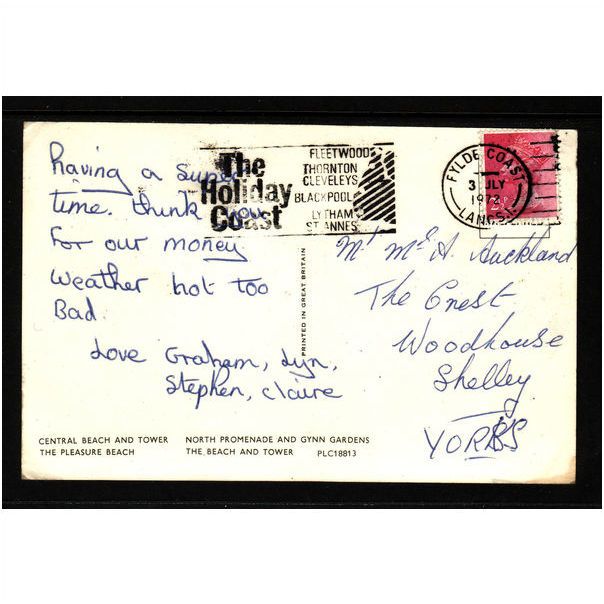 having a super
time. thank you
for our money
Weather not too
Bad
Love Graham, Lyn,
Stephen, Claire
The
Holiday
Coast
FLEETWOOD
THORNTON
CLEVELEYS
BLACKPOOL
LYTHAM
ST ANNES
FYLDE COAST
3 JLY
1972
LANCS.
Mr Mrs A. Auckland
The Crest
Woodhouse
Shelley
YORKS
PRINTED IN GREAT BRITAIN
CENTRAL BEACH AND TOWER NORTH PROMENADE AND GYNN GARDENS
THE PLEASURE BEACH THE BEACH AND TOWER PLC18813